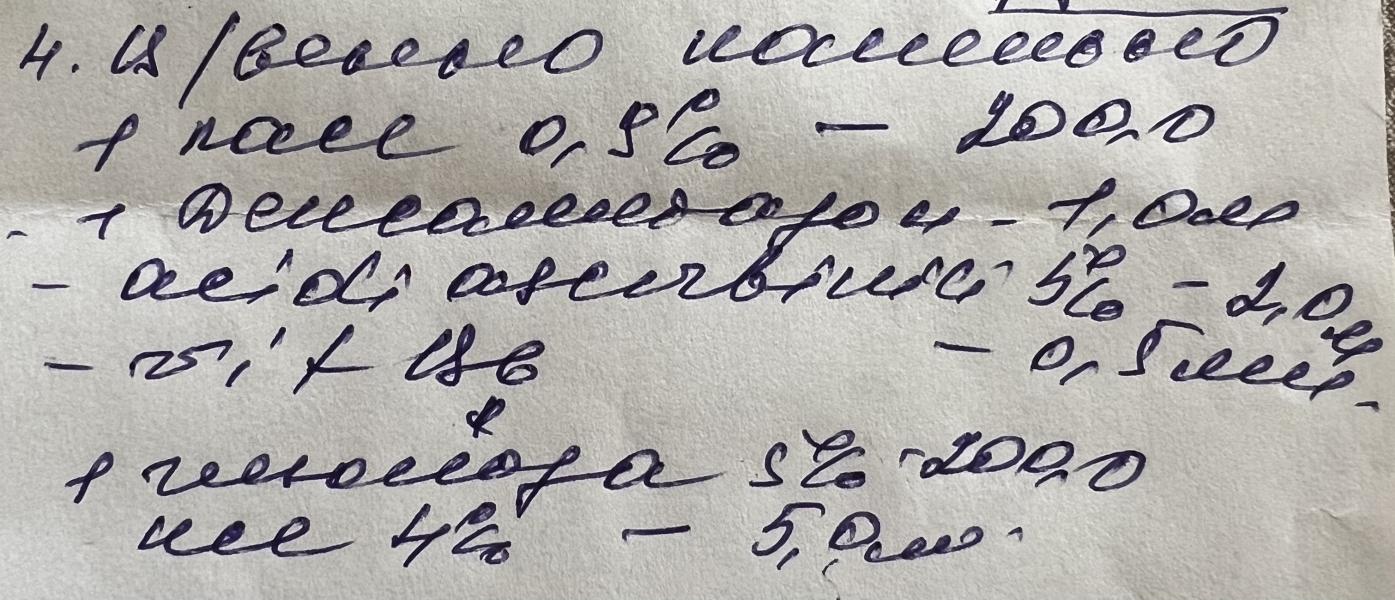 4. В/венно капельно
+ NaCl 0,9% - 200,0
- + Дексаметазон - 1,0мл
- acidi ascorbinici 5% - 2,0мл
- vit B6 - 0,5мл.
+ глюкоза 5% - 200,0
KCl 4% - 5,0мл.